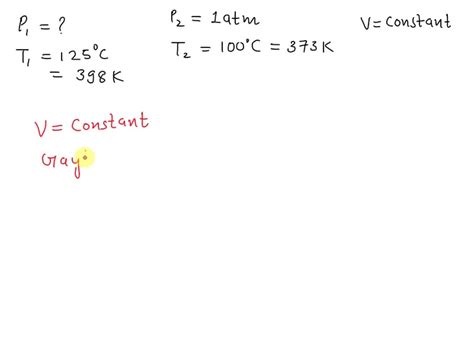 P₁ = ?
T₁ = 125°C
= 398 K
P₂ = 1 atm
T₂ = 100°C = 373 K
V = Constant
V = Constant
Gay